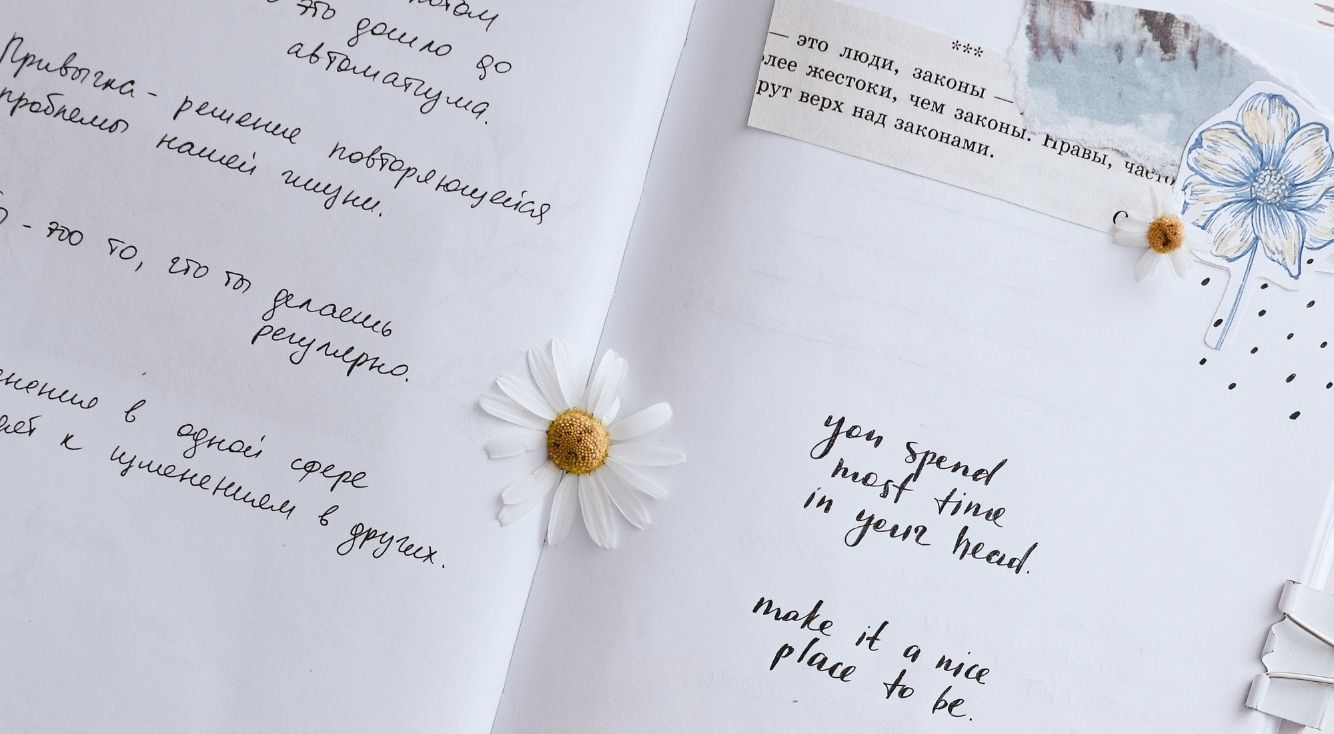 потом
это дошло до
автоматизма.
Привычка - решение повторяющейся
проблемы нашей жизни.
- это то, что ты делаешь
регулярно.
в одной сфере
к изменениям в других.
***
— это люди, законы —
лее жестоки, чем законы. Нравы, часто
рут верх над законами.
you spend
most time
in your head.
make it a nice
place to be.